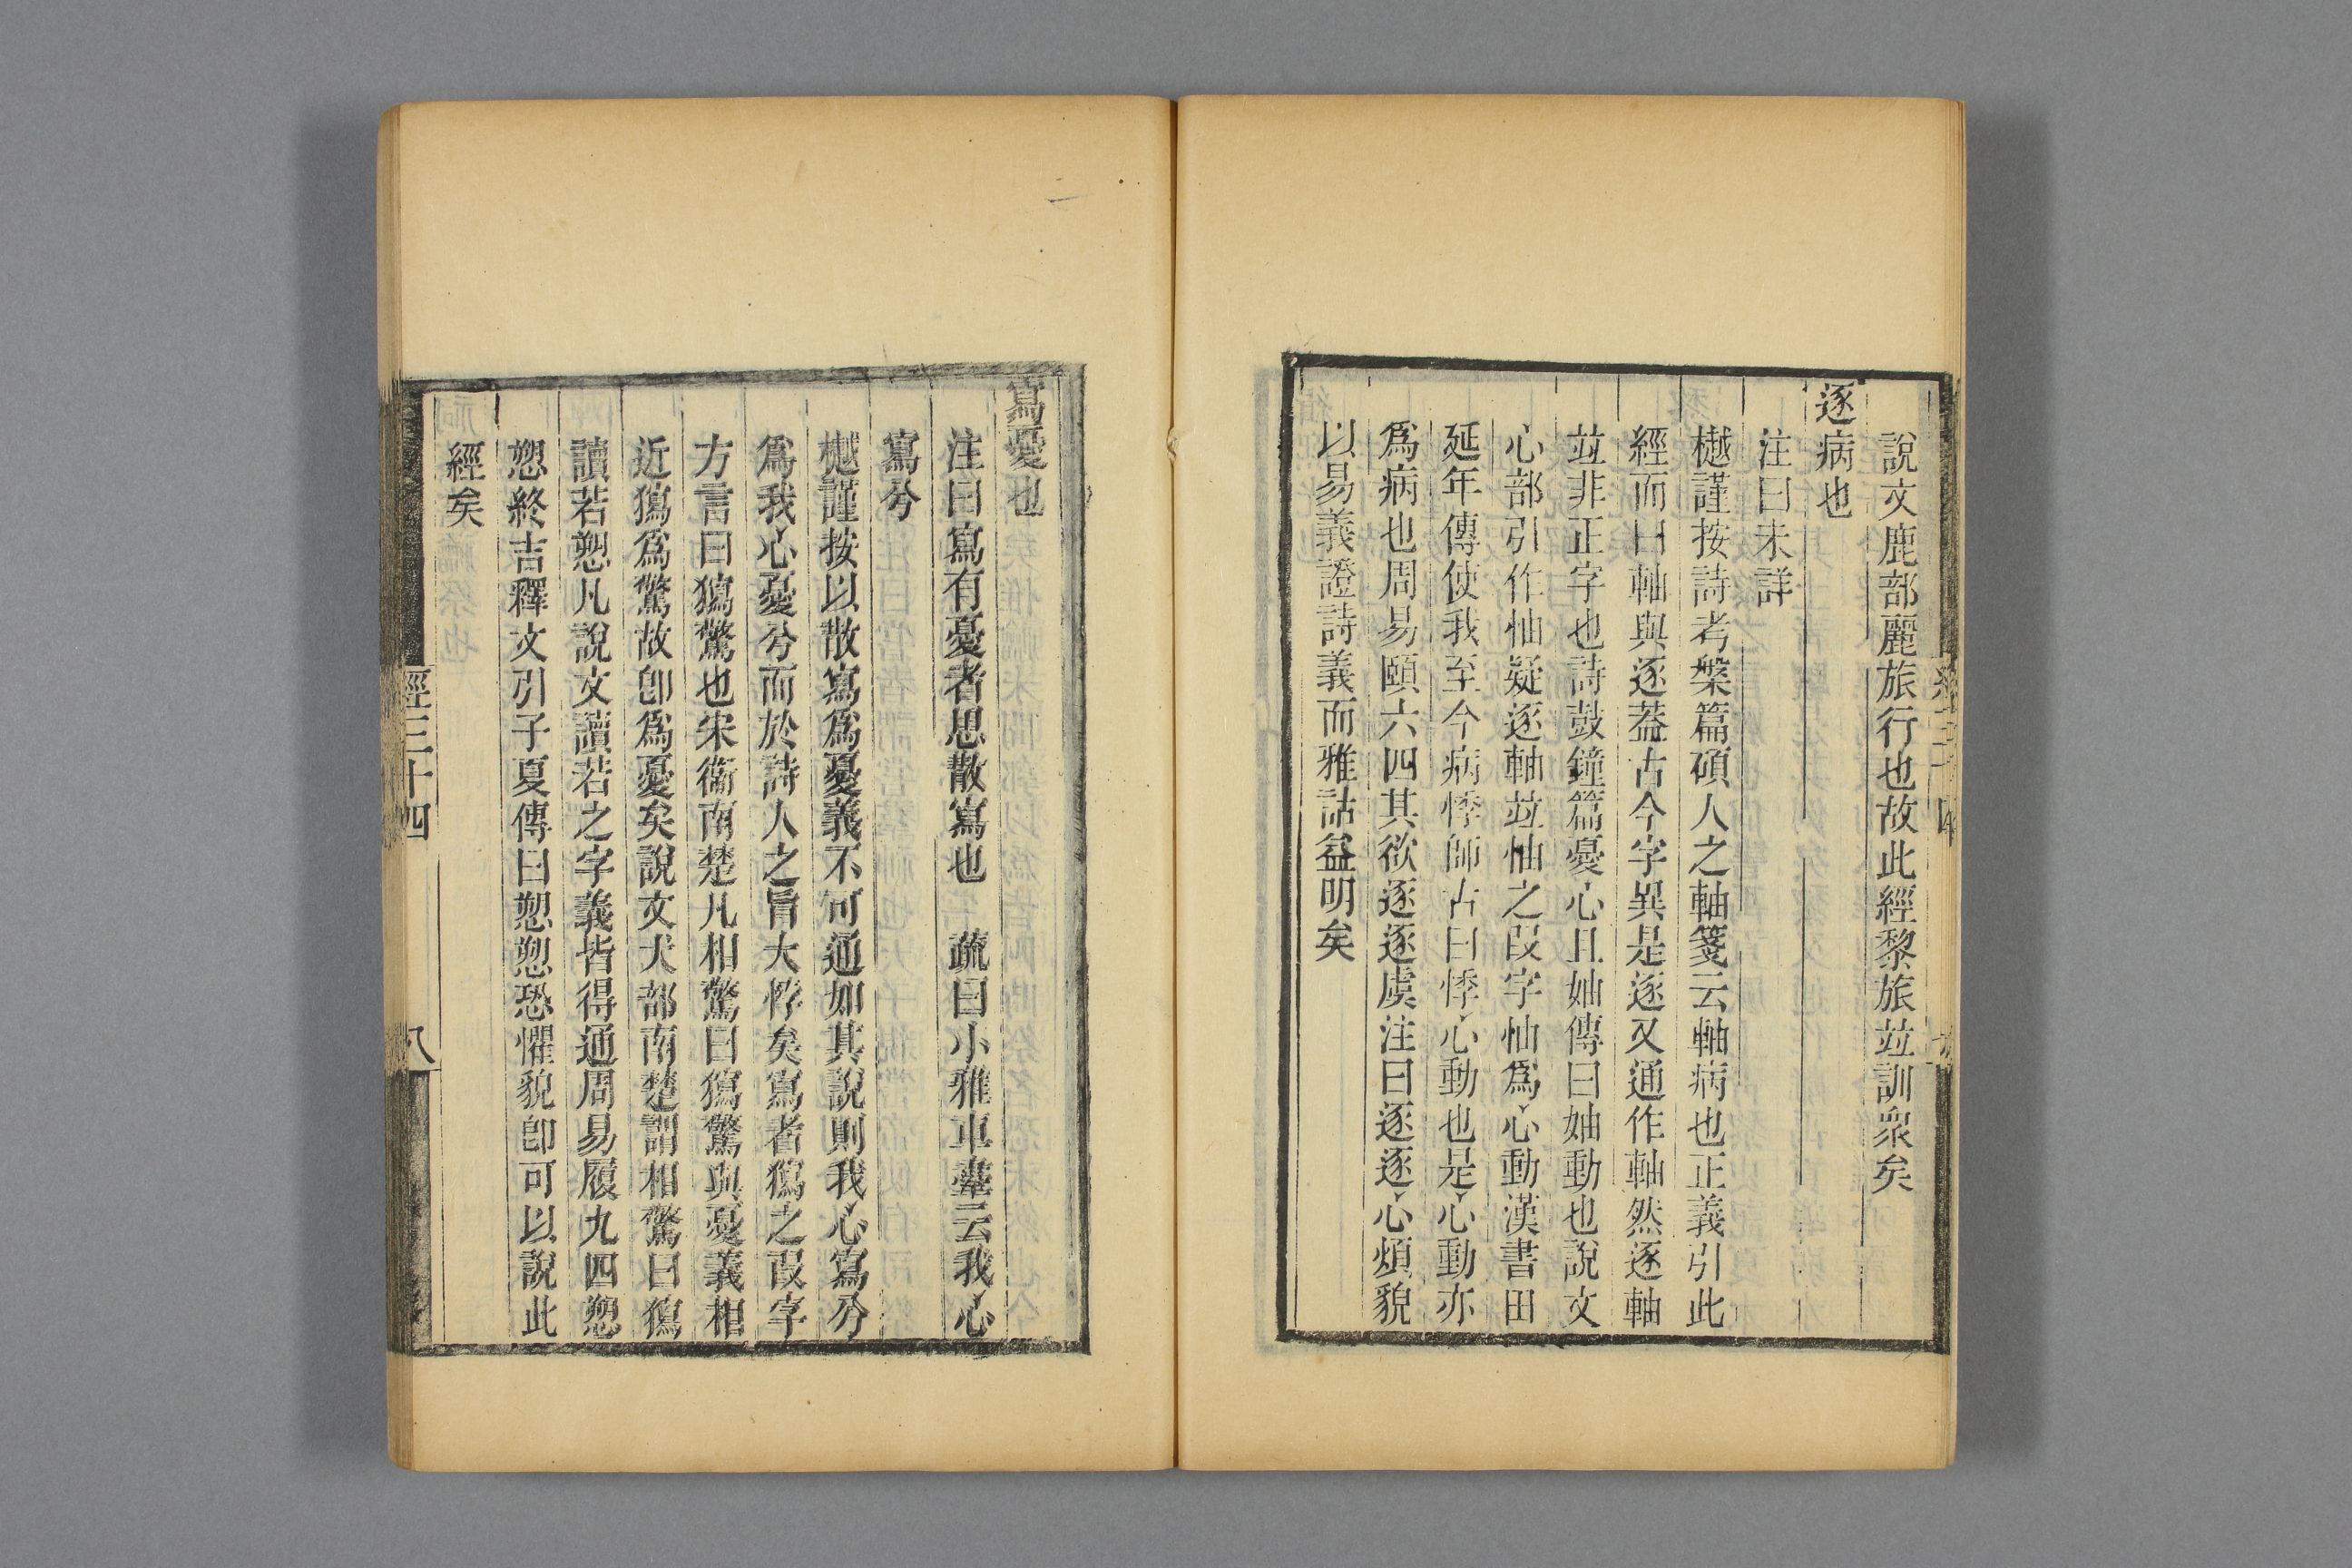 說文鹿部麗旅行也故此經黎旅竝訓衆矣
逐病也
注曰未詳
樾謹按詩考槃篇碩人之軸箋云軸病也正義引此
經而曰軸與逐葢古今字異是逐又通作軸然逐軸
竝非正字也詩鼓鐘篇憂心且妯傳曰妯動也說文
心部引作怞疑逐軸竝怞之叚字怞爲心動漢書田
延年傳使我至今病悸師古曰悸心動也是心動亦
爲病也周易頤六四其欲逐逐虞注曰逐逐心煩貌
以易義證詩義而雅詁益明矣
寫憂也
注曰寫有憂者思散寫也　疏曰小雅車舝云我心
寫兮
樾謹按以散寫爲憂義不可通如其說則我心寫兮
爲我心憂兮而於詩人之旨大悖矣寫者㺊之叚字
方言曰㺊驚也宋衞南楚凡相驚曰㺊驚與憂義相
近㺊爲驚故卽爲憂矣說文犬部南楚謂相驚曰㺊
讀若愬凡說文讀若之字義皆得通周易履九四愬
愬終吉釋文引子夏傳曰愬愬恐懼貌卽可以說此
經矣
經三十四
八